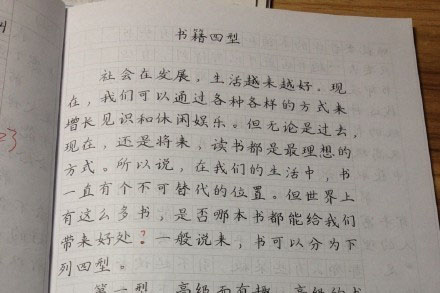 书籍四型
社会在发展，生活越来越好。现
在，我们可以通过各种各样的方式来
增长见识和休闲娱乐。但无论是过去，
现在，还是将来，读书都是最理想的
方式。所以说，在我们的生活中，书
一直有个不可替代的位置。但世界上
有这么多书，是否哪本书都能给我们
带来好处？一般说来，书可以分为下
列四型。
第一型，高级而有趣。高级的书